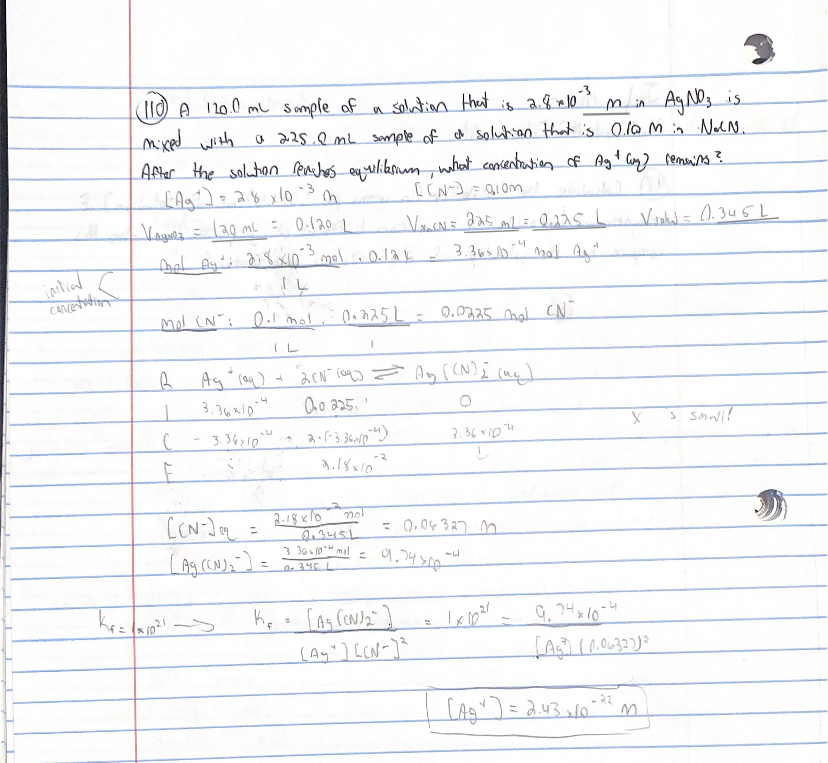 (110) A 120.0 mL sample of a solution that is 2.8×10⁻³ M in AgNO₃ is
mixed with a 225.0 mL sample of a solution that is 0.10 M in NaCN.
After the solution reaches equilibrium, what concentration of Ag⁺ (aq) remains?
[Ag⁺] = 2.8 ×10⁻³ M [CN⁻] = 0.10m
V AgNO₃ = 120 mL = 0.120 L V NaCN = 225 mL = 0.225 L V total = 0.345 L
mol Ag⁺: 2.8×10⁻³ mol · 0.12 L = 3.36×10⁻⁴ mol Ag⁺
1 L
initial
concentration
mol CN⁻: 0.1 mol . 0.225L = 0.0225 mol CN⁻
1 L 1
R Ag⁺(aq) + 2CN⁻(aq) ⇌ Ag(CN)₂⁻(aq)
I 3.36×10⁻⁴ 0.0225 0
x is small!
C - 3.36×10⁻⁴ 2·(-3.36×10⁻⁴) 3.36×10⁻⁴
E 2.18×10⁻²
[CN⁻]eq = 2.18×10⁻² mol / 0.345L = 0.06327 M
[Ag(CN)₂⁻] = 3.36×10⁻⁴ mol / 0.345 L = 9.74×10⁻⁴
Kf = 1×10²¹ → Kf = [Ag(CN)₂⁻] / [Ag⁺][CN⁻]² = 1×10²¹ = 9.74×10⁻⁴ / [Ag⁺](0.06327)²
[Ag⁺] = 2.43×10⁻²² M